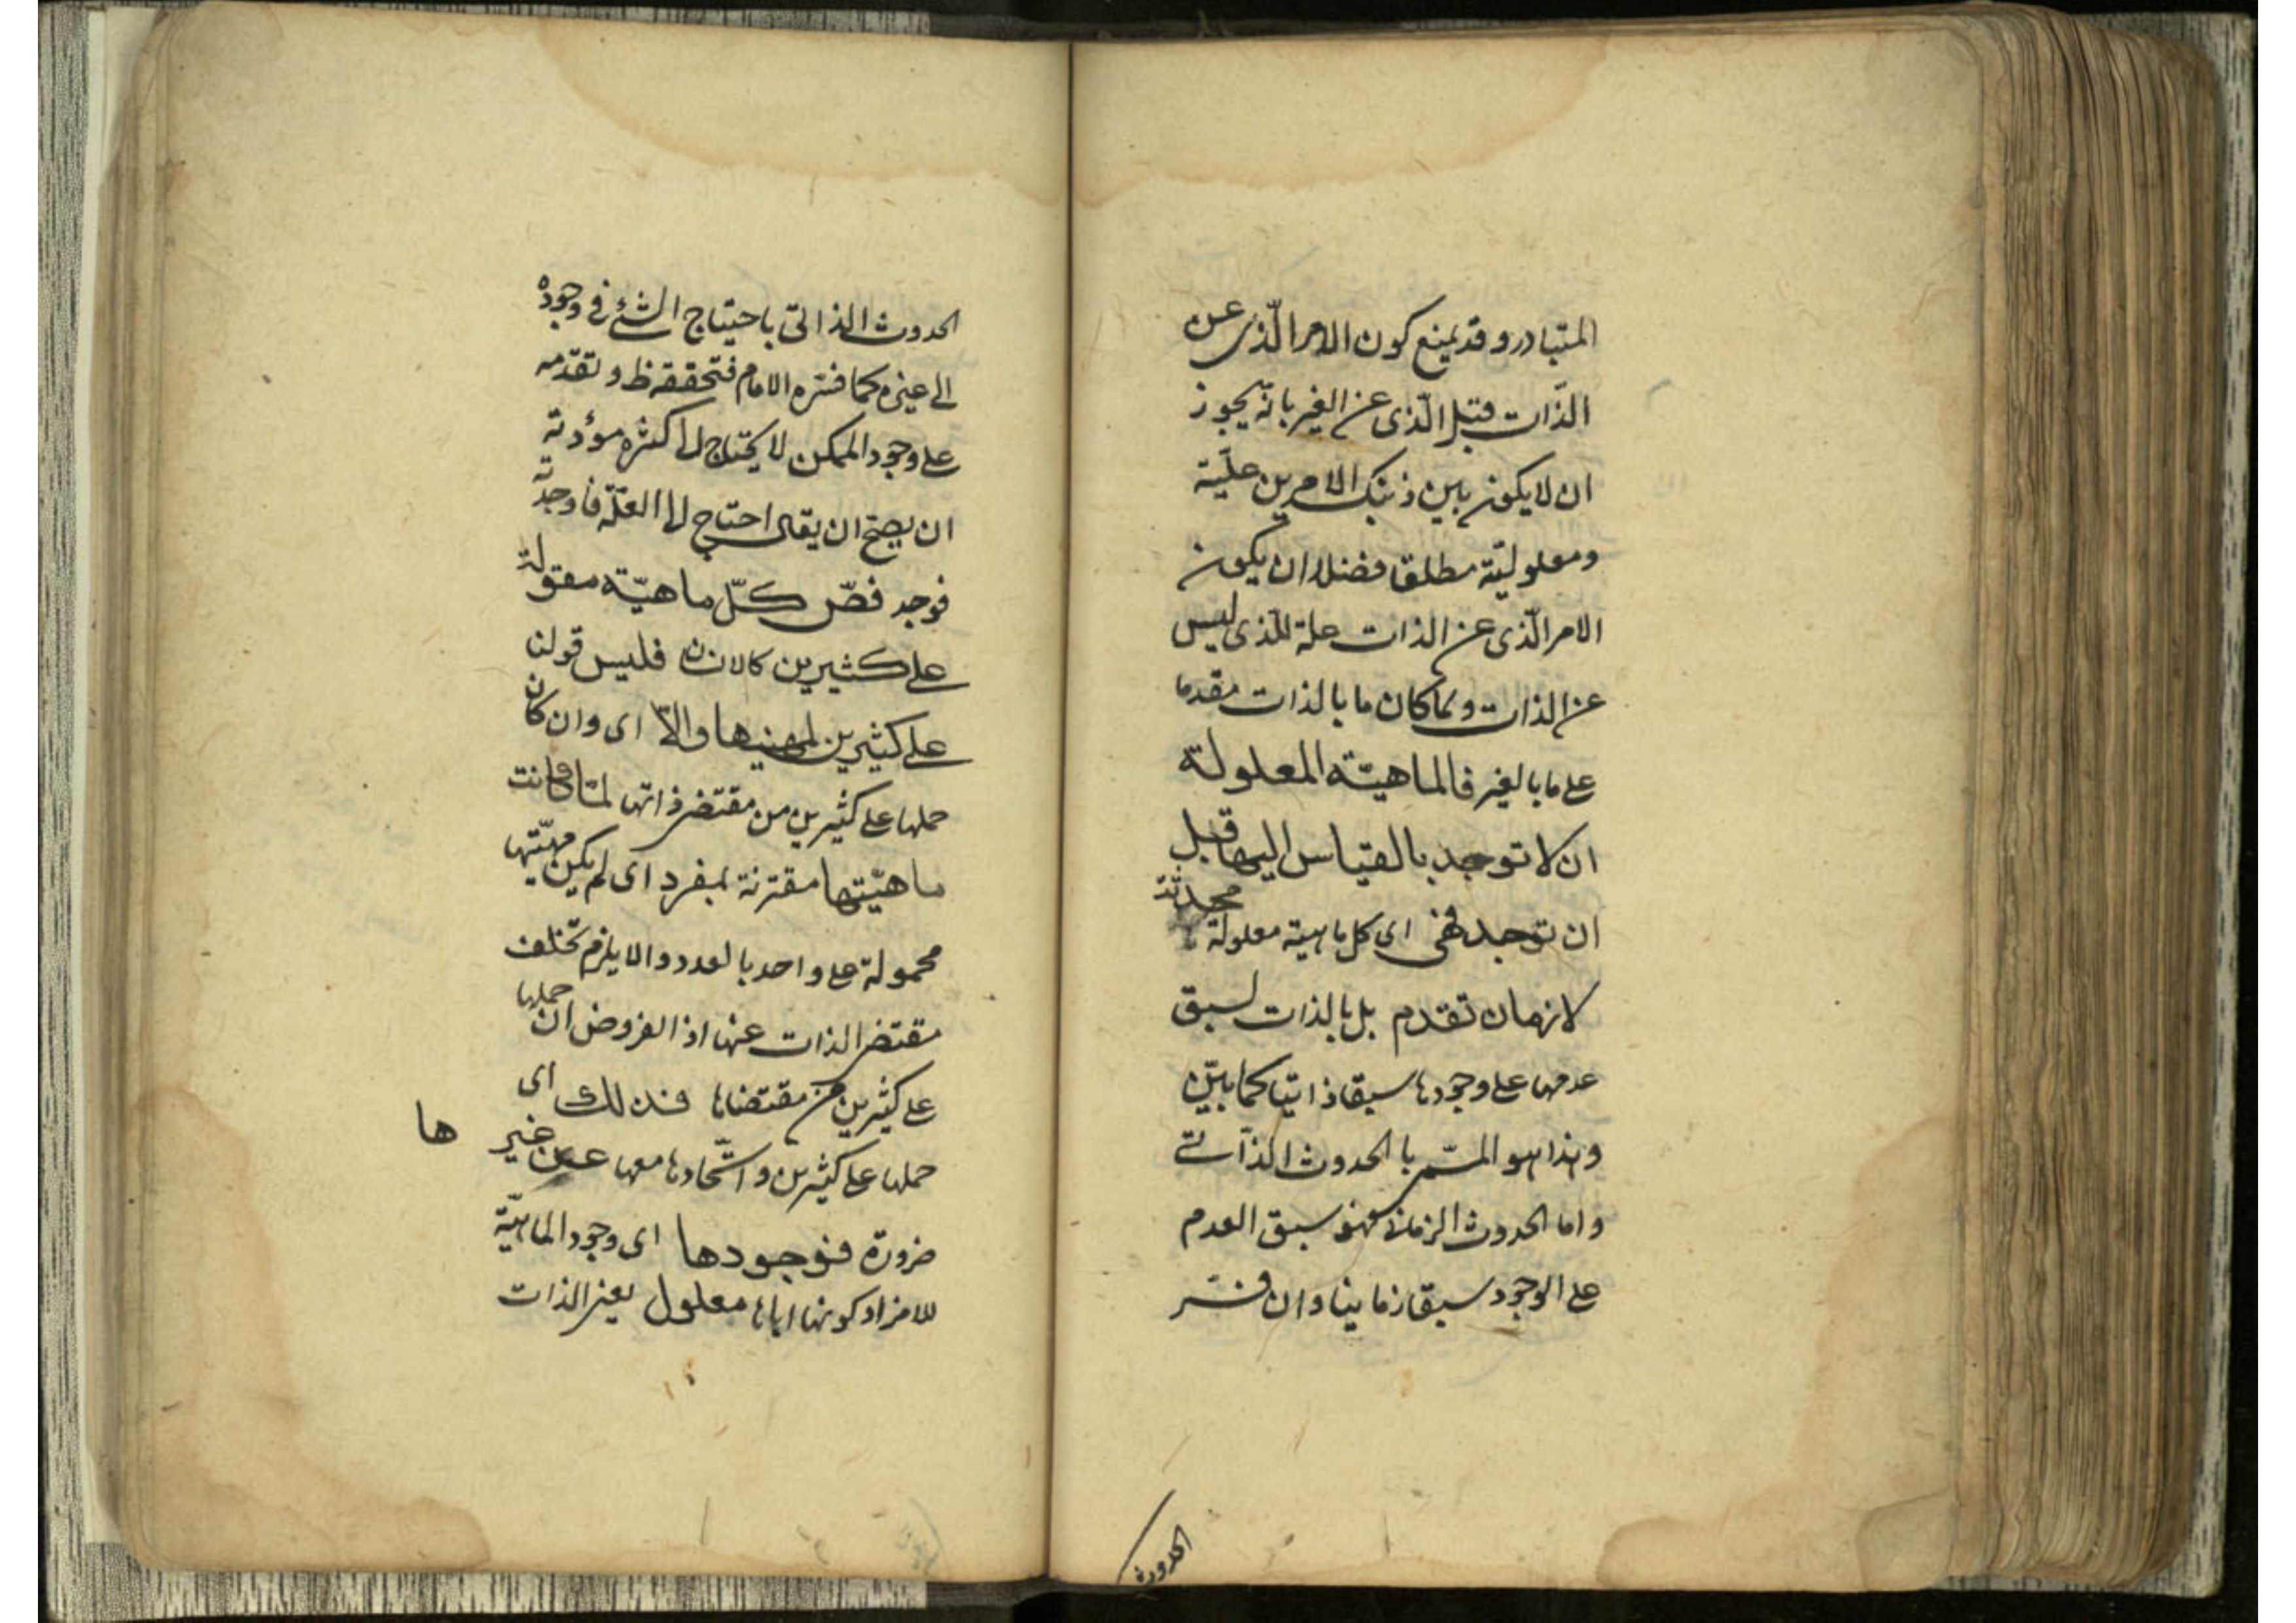 المتبادر وقد يمنع كون الامر الّذى عن
الذّات قبل الّذى عن الغير بانّه يجوز
ان لا يكون بين ذينك الامرين عليّة
ومعلوليّة مطلقا فضلا ان يكون
الامر الّذى عن الذات علة للّذى ليس
عن الذات ولما كان ما بالذات مقدما
على ما بالغير فالماهيّة المعلولة
ان لا توجد بالقياس اليها قبل
ان توجد فهى اى كل ماهية معلولة محدثة
لا زمان تقدم بل بالذات لسبق
عدمها على وجودها سبقا ذاتيّا كما بيّن
وهذا هو المسمّى بالحدوث الذّاتى
واما الحدوث الزمانى فهو سبق العدم
على الوجود سبقا زمانيا وان فسّر
الحدوث
الحدوث الذاتىّ باحتياج الشئ فى وجوده
الى غيره كما فسّره الامام فتحققه ظ و تقدّمه
على وجود الممكن لا يحتاج الى كثرة مؤدته
ان يصحّ ان يقال احتاج الى العلّة فاوجدته
فوجد فصّ كلّ ماهيّة مقولة
على كثيرين كالانسان فليس قولنا
على كثيرين لمهيتها والّا اى وان كان
حملها على كثيرين من مقتضى ذاتها لما كانت
ماهيّتها مقترنة بمفرد اى لم يكن مهيّتها
محمولة على واحد بالعدد والا يلزم تخلف
مقتضى الذات عنها اذ الفروض ان حملها
على كثيرين من مقتضاها فذلك اى
حملها على كثيرين واتّحادها معها عن غير ها
ضرورة فوجودها اى وجود الماهيّة
للافراد كونها اياها معلول لغير الذات